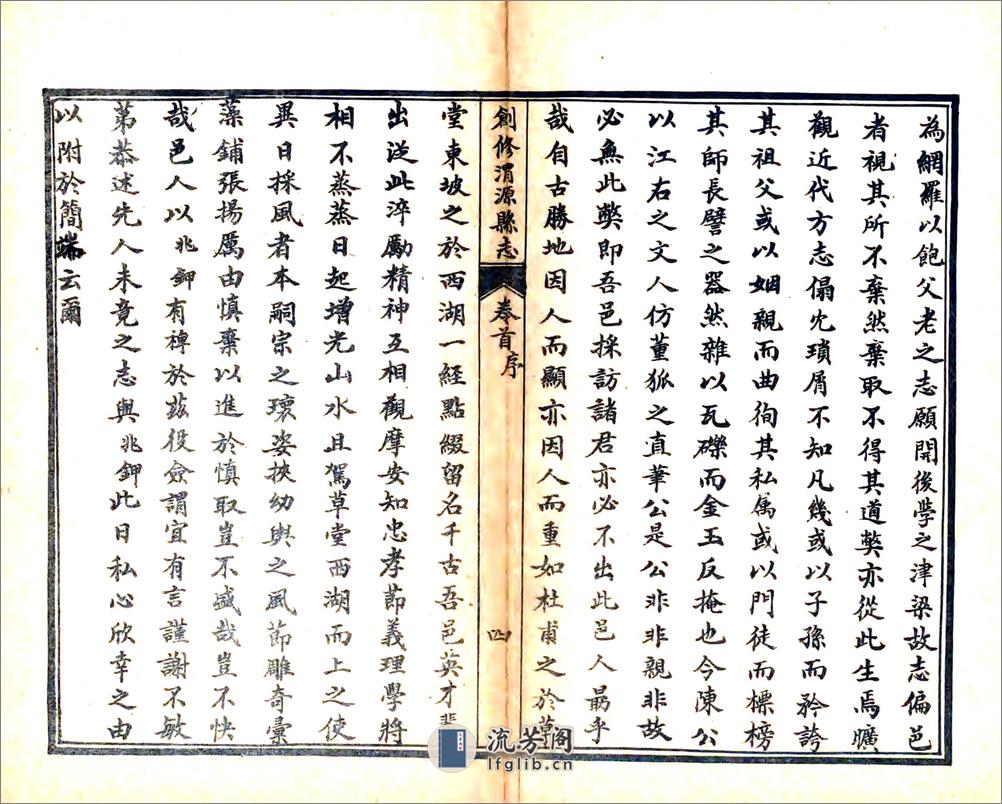 為網羅以飽父老之志願開後學之津梁故志偏邑
者視其所不棄然棄取不得其道獘亦從此生焉曠
觀近代方志傝冗瑣屑不知凡幾或以子孫而矜誇
其祖父或以姻親而曲徇其私属或以門徒而標榜
其師長譬之器然雜以瓦礫而金玉反掩也今陳公
以江右之文人仿董狐之直筆公是公非非親非故
必無此獘即吾邑採訪諸君亦必不出此邑人勗乎
哉自古勝地因人而顯亦因人而重如杜甫之於草
創修渭源縣志 卷首序 四
堂東坡之於西湖一經點綴留名千古吾邑英才輩
出從此淬勵精神互相觀摩安知忠孝節義理學將
相不蒸蒸日起增光山水且駕草堂西湖而上之使
異日採風者本嗣宗之瓌姿挾幼輿之風節雕奇彚
藻鋪張揚厲由慎棄以進於慎取豈不盛哉豈不快
哉邑人以兆鉀有裨於兹役僉謂宜有言謹謝不敏
第恭述先人未竟之志與兆鉀此日私心欣幸之由
以附於簡端云爾
流芳阁
lfglib.cn